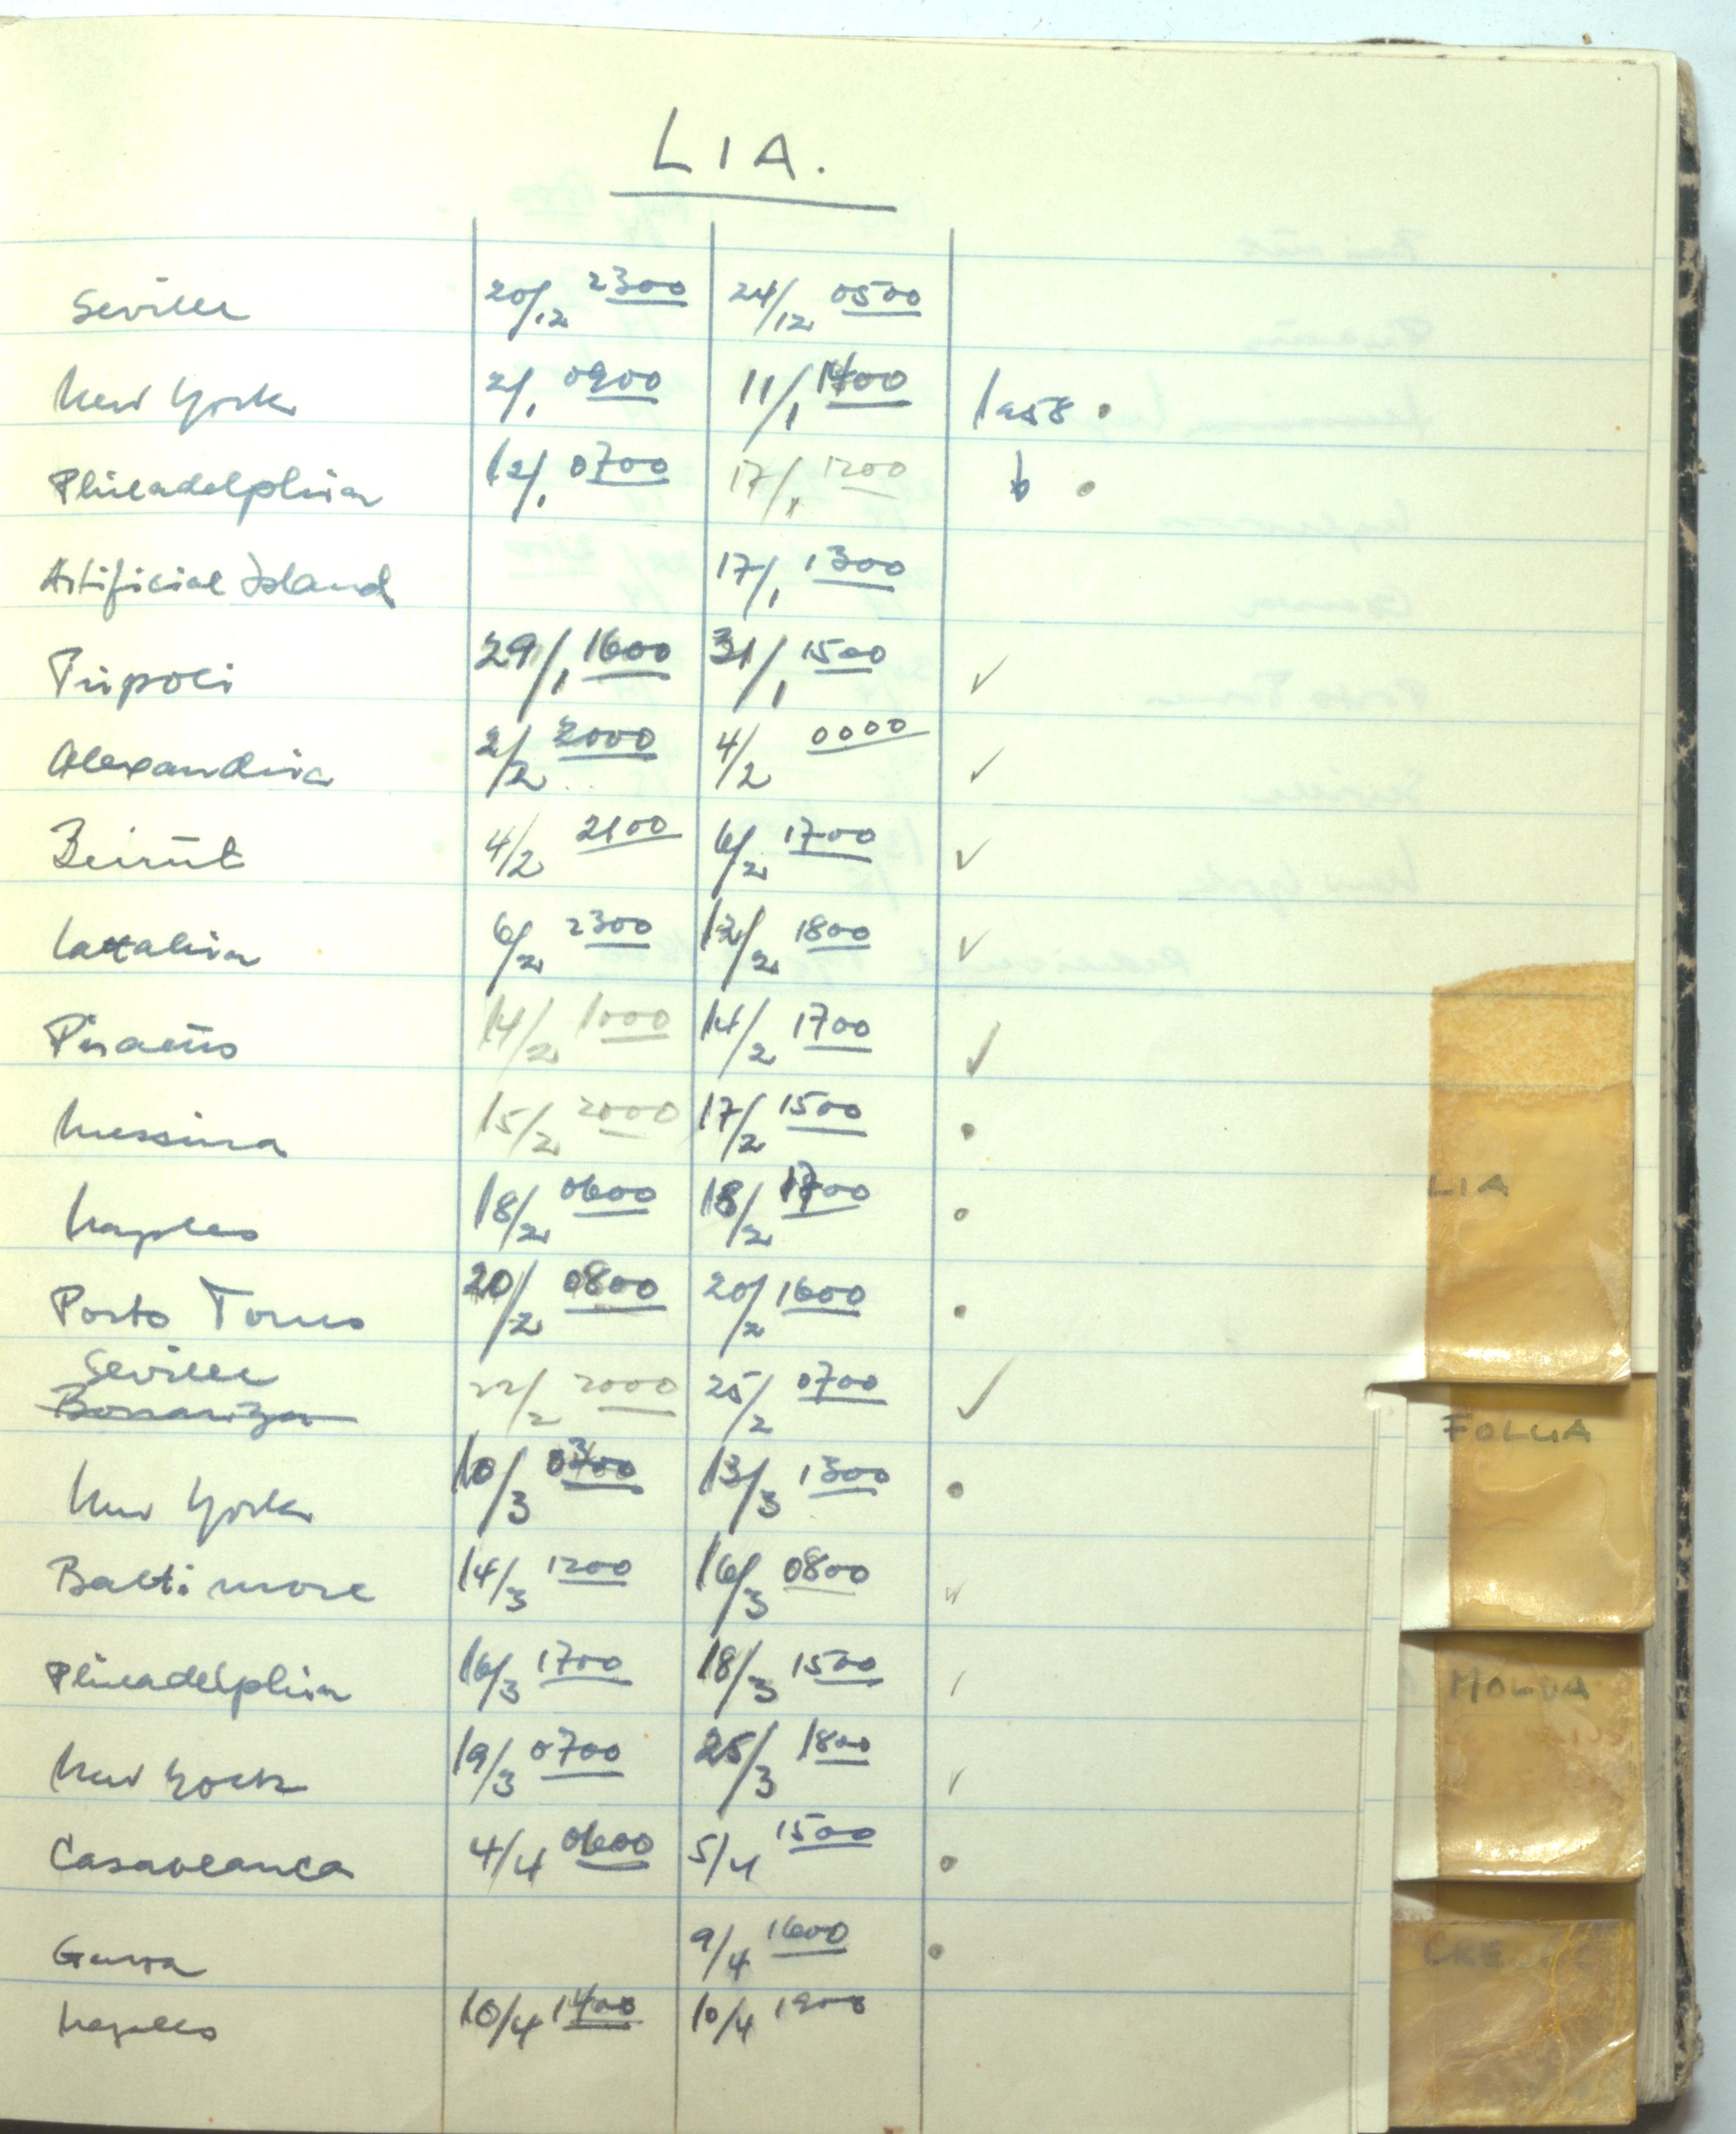 LIA.
Seville 20/12 2300 24/12 0500
New York 2/1 0900 11/1 1400 1958 •
Philadelphia 12/1 0700 17/1 1200 •
Artificial Island 17/1 1300
Tripoli 29/1 1600 31/1 1500 ✓
Alexandria 2/2 2000 4/2 0000 ✓
Beirut 4/2 2100 6/2 1700 ✓
Lattakia 6/2 2300 12/2 1800 ✓
Piraeus 14/2 1000 14/2 1700 ✓
Messina 15/2 2000 17/2 1500 •
Naples 18/2 0600 18/2 1700 •
Porto Torres 20/2 0800 20/2 1600 •
Seville
Bonanza 22/2 2000 25/2 0700 ✓
New York 10/3 0300 13/3 1300 •
Baltimore 14/3 1200 16/3 0800 ✓
Philadelphia 16/3 1700 18/3 1500
New York 19/3 0700 25/3 1800 ✓
Casablanca 4/4 0600 5/4 1500 •
Genoa 9/4 1600 •
Naples 10/4 1400 10/4 1900
LIA
FOLGA
MOLDA